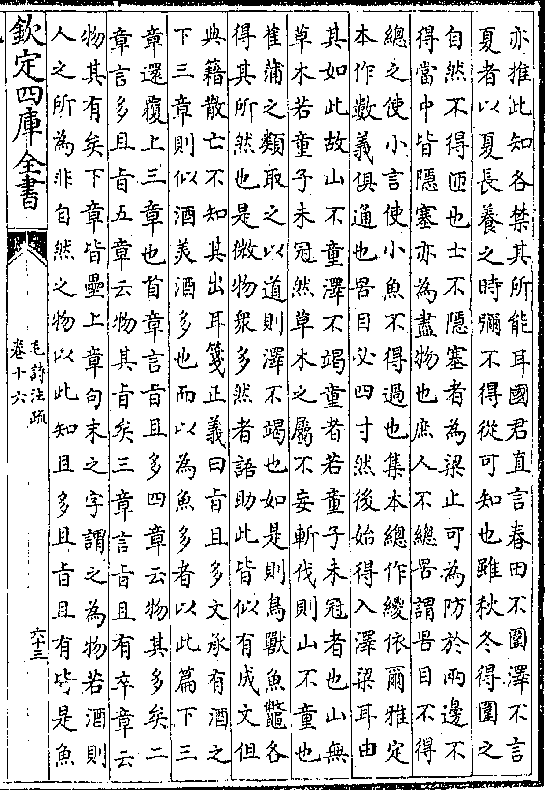 亦推此知各禁其所能耳國君直言春田不圍澤不言
夏者以夏長養之時彌不得從可知也雖秋冬得圍之
自然不得匝也士不隱塞者為梁止可為防於兩邊不
得當中皆隱塞亦為盡物也庶人不總罟謂罟目不得
總之使小言使小魚不得過也集本總作緵依爾雅定
本作數義俱通也罟目必四寸然後始得入澤梁耳由
其如此故山不童澤不竭童者若童子未冠者也山無
草木若童子未冠然草木之屬不妄斬伐則山不童也
萑蒲之類取之以道則澤不竭也如是則鳥獸魚鼈各
得其所然也是微物衆多然者語助此皆似有成文但
典籍散亡不知其出耳箋正義曰旨且多文承有酒之
下三章則似酒美酒多也而以為魚多者以此篇下三
章還覆上三章也首章言旨且多四章云物其多矣二
章言多且旨五章云物其旨矣三章言旨且有卒章云
物其有矣下章皆疊上章句末之字謂之為物若酒則
人之所為非自然之物以此知且多且旨且有皆是魚
欽定四庫全書
毛詩注疏
卷十六
六十三